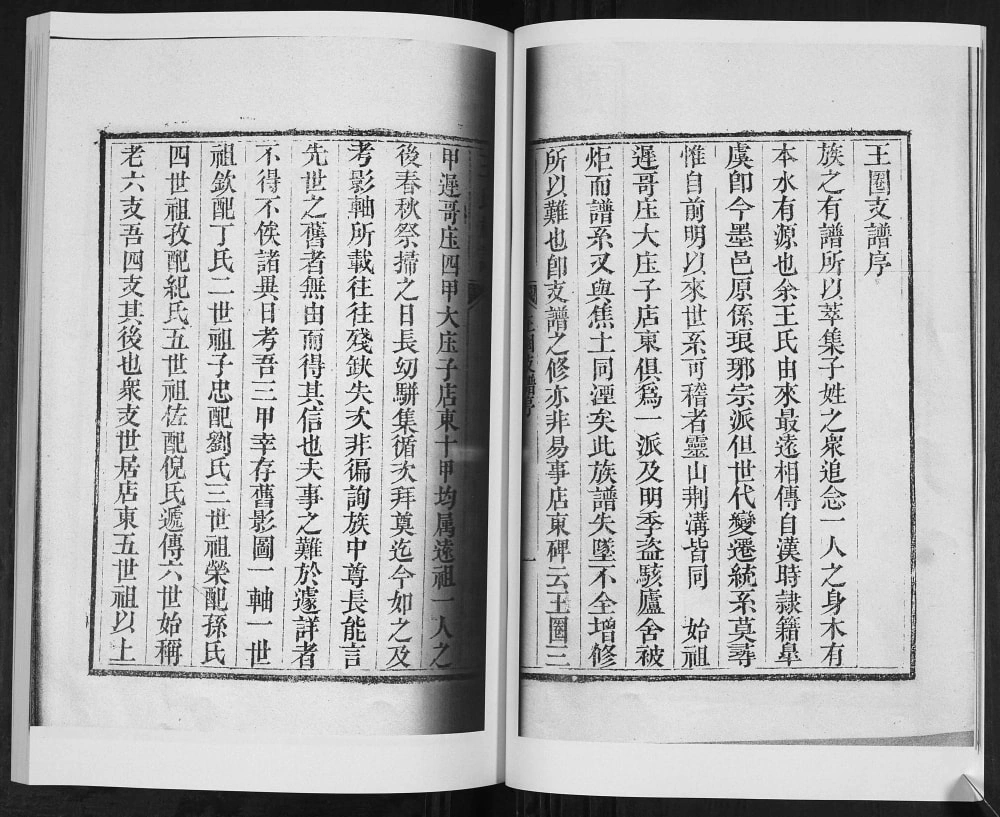 王圈支譜序
族之有譜所以萃集子姓之衆追念一人之身木有
本水有源也余王氏由來最遠相傳自漢時隷籍皐
虞卽今墨邑原係琅琊宗派但世代變遷統系莫尋
惟自前明以來世系可稽者靈山荆溝皆同 始祖
遲哥庄大庄子店東俱爲一派及明季盜駭廬舍被
炬而譜系又與焦土同湮矣此族譜失墜不全增修
所以難也卽支譜之修亦非易事店東碑云王圈三
甲遲哥庄四甲大庄子店東十甲均属遠祖一人之
後春秋祭掃之日長幼駢集循次拜奠迄今如之及
考影軸所載往往殘缺失次非徧詢族中尊長能言
先世之舊者無由而得其信也夫事之難於遽詳者
不得不俟諸異日考吾三甲幸存舊影圖一軸一世
祖欽配丁氏二世祖子忠配劉氏三世祖榮配孫氏
四世祖孜配紀氏五世祖佐配倪氏遞傳六世始稱
老六支吾四支其後也衆支世居店東五世祖以上